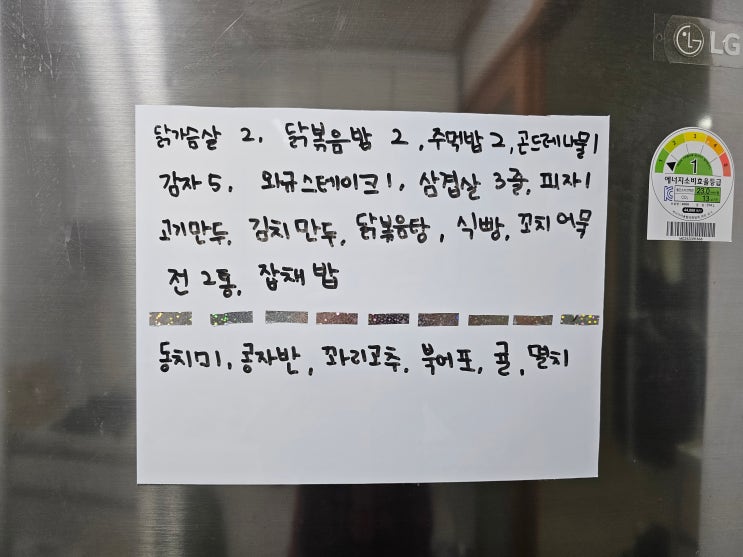 LG
닭가슴살 2, 닭볶음밥 2, 주먹밥 2, 곤드레나물 1
감자 5, 와규스테이크 1, 삼겹살 3줄, 피자 1
고기만두, 김치만두, 닭볶음탕, 식빵, 꼬치어묵
전 2통, 잡채밥
동치미, 콩자반, 꽈리고추, 북어포, 귤, 멸치
1 2 3 4 5
1
에너지소비효율등급